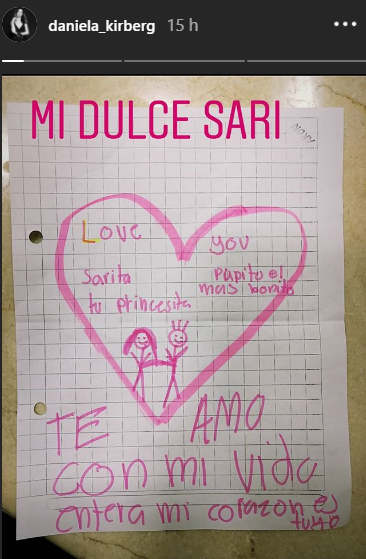 daniela_kirberg 15 h
MI DULCE SARI
Love you
Sarita Papito el
tu princesita mas bonito
TE AMO
con mi vida
entera mi corazon es
tuyo